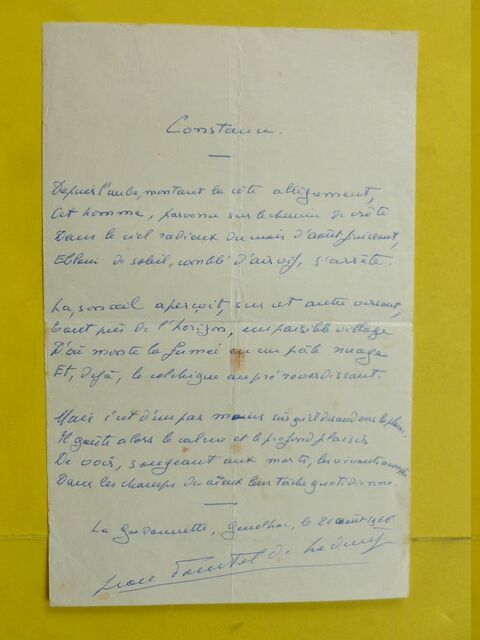 Constance.
Depuis l'aube, montant la côte allègrement,
Cet homme, parvenu sur le chemin de crête
Dans le ciel radieux du mois d'août finissant,
Ebloui de soleil, comblé d'air vif, s'arrête.
Là, son œil aperçoit, sur cet autre versant,
Tout près de l'horizon, un paisible village
D'où monte la fumée en un pâle nuage
Et, déjà, le colchique au pré reverdissant.
Mais c'est d'un pas moins sûr qu'il descend vers la plaine.
Il goûte alors le calme et le profond plaisir
De voir, songeant aux morts, les vivants
Dans les champs des aïeux leur tâche quotidienne.
La le 26 août 1966
de